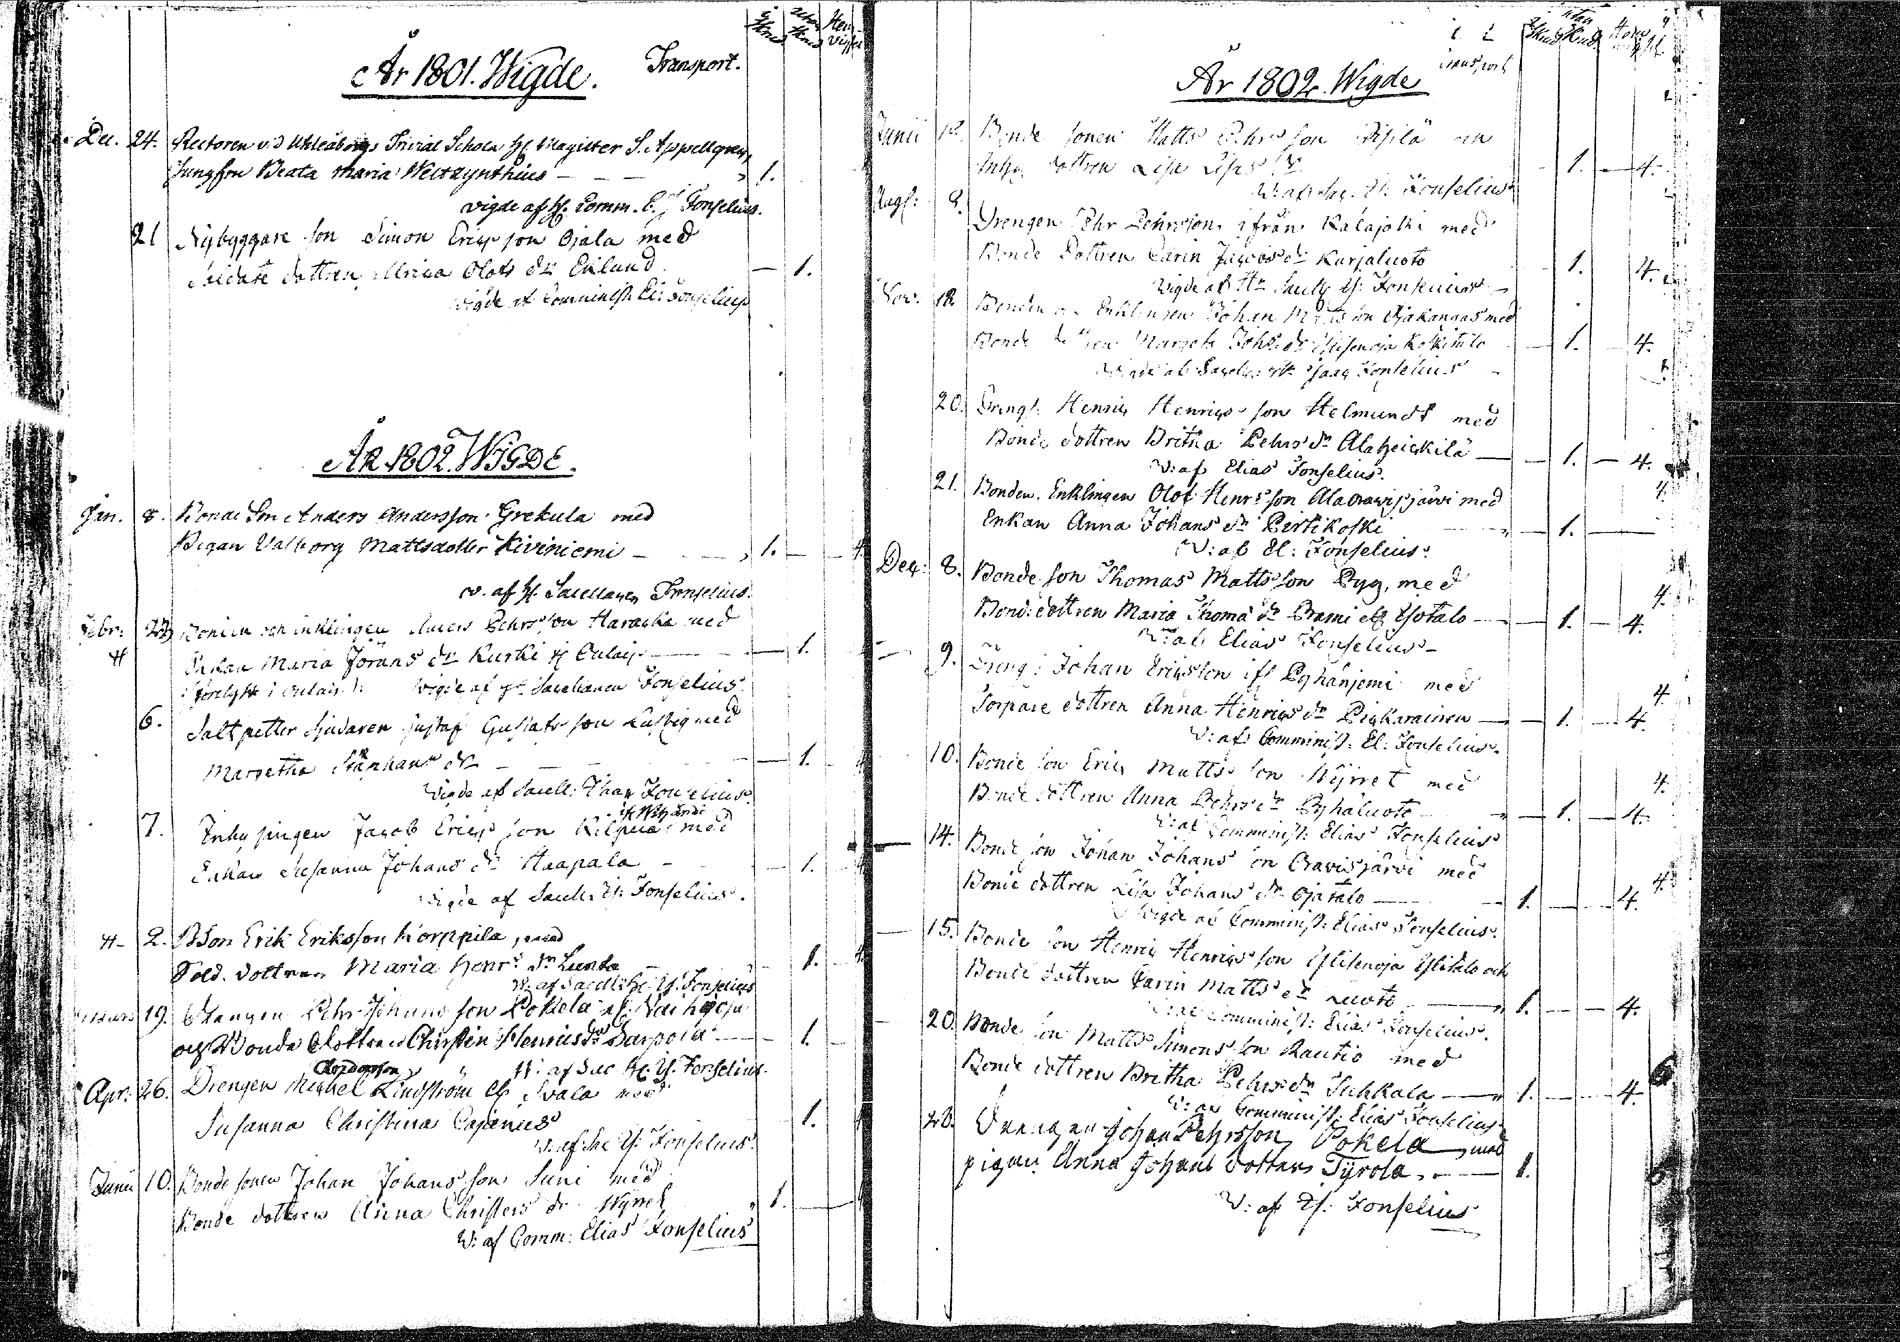 År 1801. Wigde. Transport.
Dec. 24. Rectoren v.d Uhleåborgs Trivial Schola H. Magister S. Appellgren,
Jungfru Beata Maria Westzynthius — 1.
vigde af H. Comm. E. Fonselius.
21 Nybyggare son Simon Erics son Ojala med
Soldate dottren Ulrica Olofs dr Eklund — 1.
Wigde af Comminist. El: Fonselius
ÅR 1802. WIGDE.
Jan. 8. Bonde Son Anders Andersson Grekula med
Pigan Valborg Mattsdotter Kiviniemi — 1. — 4
w. af H. Sacellanen Fonselius.
Febr: Bonden och enklingen Anders Pehrsson Haracka med
Enkan Maria Jörans dr Kurki — 1.
wigde af Sacellanen Fonselius.
6. Saltpetter Sjudaren Gustaf Gustafs son Lustig med
Margetha dr — 1.
Wigde af Sacell: Isaac Fonselius.
7. Inhysingen Jacob Erics son med
Enkan Susanna Johans dr Haapala — 1.
wigde af Sacell. Is: Fonselius.
2. BSon Erik Eriksson Korppila, med
Sold. dottren Maria Henrs dr Lunta — 1.
W: af Sacell: H: Is. Fonselius
Mars 19. Drengen Pehr Johans son Pokela
och Bonde Dottren Christin Henrics dr Sarpola — 1.
W: af Sac H: Is. Fonselius.
Apr: 26. Drengen Michel Lindström Svala med
Susanna Christina Cajanus — 1.
W: af Sac Is: Fonselius.
Junii 10. Bonde sonen Johan Johans son Suni med
Bonde dottren Anna Christers dr Nyrret — 1.
W: af Comm: Elias Fonselius
År 1802. Wigde
Transport
Junii Bonde sonen Matts Pehrs son och
dottren Lisa — 1. — 4.
W: af Sac. Is: Fonselius
Aug: 8. Drengen Pehr Pehrsson ifrån Kalajoki med
Bonde Dottren Carin Jacobs dr Karjaluoto 1. 4.
Wigde af Hr Sacell Is: Fonselius
Nov: 12. Bonden och Enklingen Johan Matts son Ojakangas med
Bonde dottren Margeta Johs: dr Koskitalo — 1. — 4.
Wigde af Sacell: Isaac Fonselius
20. Dreng: Henric Henrics son Helmundt med
Bonde dottren Britha Pehrs dr Alaheickilä — 1. — 4.
W: af Elias Fonselius.
21. Bonden, Enklingen Olof Henrs son Alaoravisjärvi med
Enkan Anna Johans dr Pertikoski — 1. —
W: af El: Fonselius.
Dec: 8. Bonde son Thomas Matts son Pyg, med
Bond: dottren Maria Thoma dr Prami — 1. — 4.
W: af Elias Fonselius
9. Dreng: Johan Ericsson ifr Pyhänjemi med
Torpare dottren Anna Henrics dr Pickarainen — 1. — 4.
W: af Comminist: El: Fonselius.
10. Bonde son Eric Matts son Nyrret med
Bonde dottren Anna Pehrs dr Pyhäluoto — 1. — 4.
W: af Comminist: Elias Fonselius
14. Bonde son Johan Johans son Oravisjärvi med
Bonde dottren Lisa Johans dr Ojatalo — 1. — 4.
Wigde af Comminist: Elias Fonselius.
15. Bonde son Henric Henrics son Ylitalo och
Bonde dottren Carin Matts dr Luoto — 1. — 4.
W: af Comminist: Elias Fonselius.
20. Bonde son Matts Simons son Rautio med
Bonde dottren Britha Pehrs dr Tuhkala — 1. — 4.
W: af Comminist: Elias Fonselius
28. Drengen Johan Pehrsson Pokela, med
pigan Anna Johans dotter Tyrola. — 1.
W: af Is: Fonselius